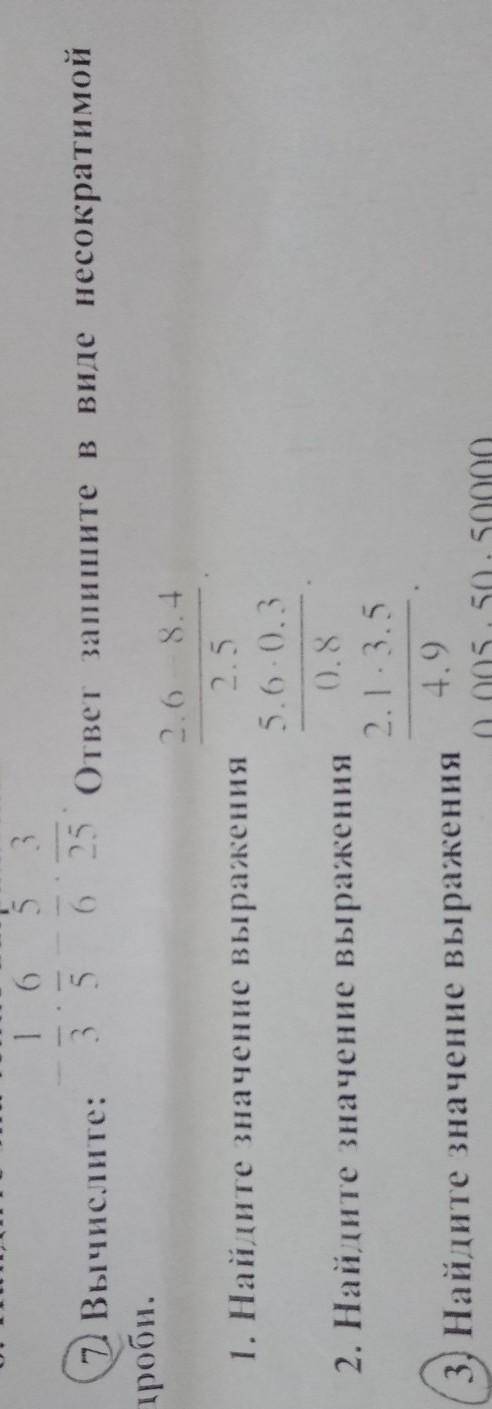 7. Вычислите: − 1/3 : 6/5 − 5/6 : 3/25. Ответ запишите в виде несократимой
дроби.
1. Найдите значение выражения (2.6 − 8.4)/2.5.
2. Найдите значение выражения (5.6 · 0.3)/0.8.
3. Найдите значение выражения (2.1 · 3.5)/4.9.
0.005 · 50 · 50000